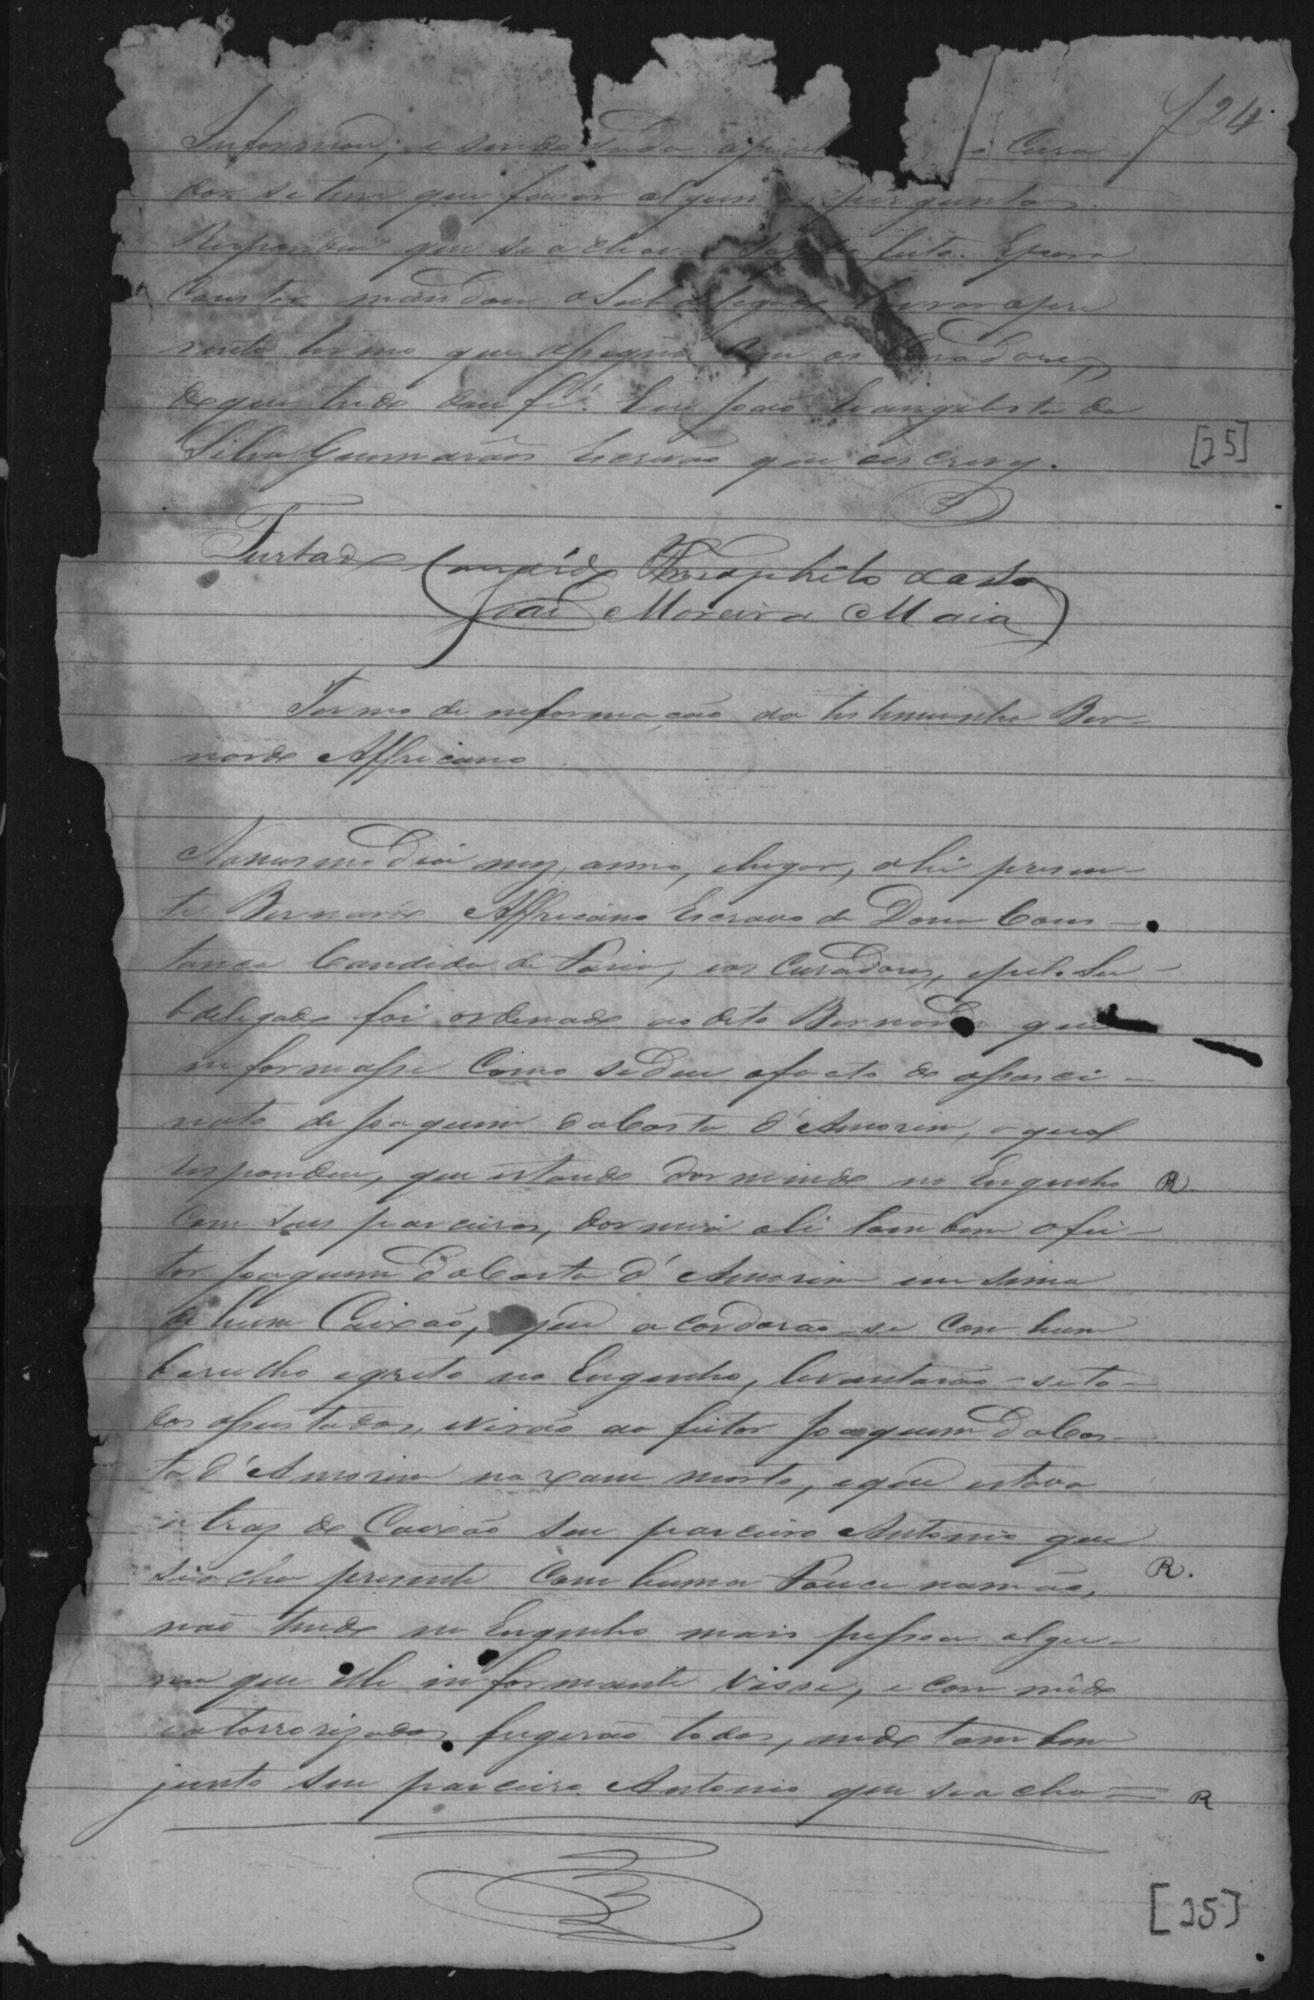 f 24
Informou; e sendo dada a pal o Cura-
dor se tem que fazer alguma pergunta
Respondeu que se achava satisfeito. E para
Constar mandou o Subdelegado lavrar o pre
zente termo que assigna com os Curadores,
de que tudo dou fé. Eu João Evangelista da
Silva Guimarães Escrivão que escrevy.
[25]
Furtado Theophilo
João Moreira Maia
Termo de informação da testemunha Ber-
nardo Affricano
No mesmo dia mez, anno, e lugar, ahi presen-
te Bernardo Affricano Escravo de Dona Cons-
tança Candida de Faria, e os Curadores, e pelo Su-
bdelegado foi ordenado ao dito Bernardo que
informasse como se deu o facto do assaci-
nato de Joaquim da Costa d'Amorim, o qual
respondeu, que estando dormindo no Engenho R.
com seus parceiros, dormia ali tambem o fei-
tor Joaquim da Costa d'Amorim em sima
de hum Caixão, e que acordarão-se com hum
barulho e grito no Engenho, levantarão-se to-
dos assustados, e virão ao feitor Joaquim da Cos-
ta d'Amorim no xam morto, e que estava
atraz do Caixão seu parceiro Antonio que
se acha prezente com huma Fouce na mão, R.
não tendo no Engenho mais pessoa algu-
ma que elle informante visse, e com mêdo
e atorrorizados fugirão todos, indo tambem
junto seu parceiro Antonio que se acha= R
[25]